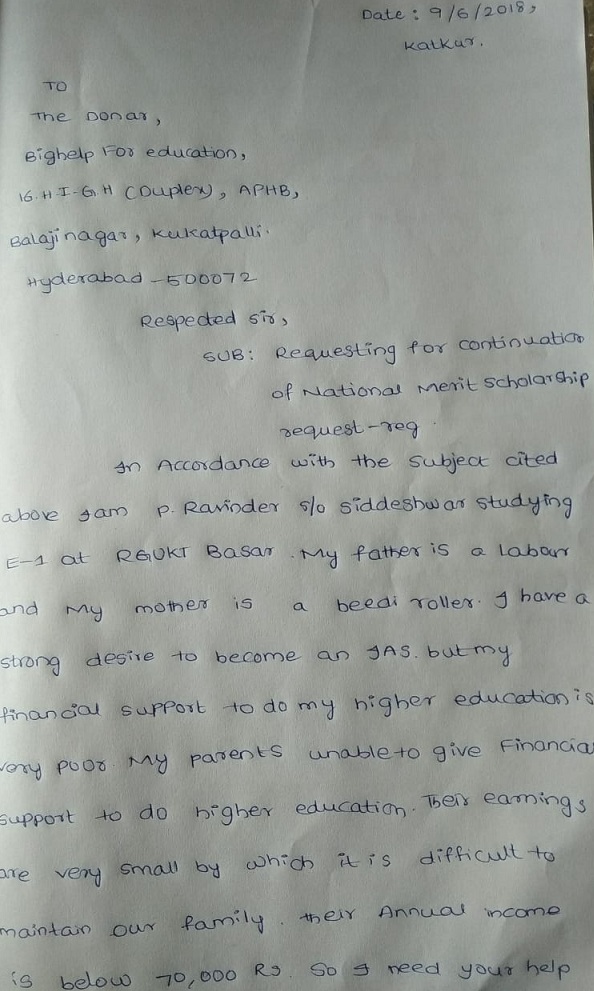 Date: 9/6/2018,
Katkur.
TO
The Donar,
Bighelp For education,
16.H I-G H (Duplex), APHB,
Balaji nagar, Kukatpalli.
Hyderabad -500072
Respected sir,
SUB: Requesting for continuation
of National Merit Scholarship
request-reg.
In Accordance with the subject cited
above I am P. Ravinder s/o Siddeshwar studying
E-1 at RGUKT Basar. My father is a labour
and My mother is a beedi roller. I have a
strong desire to become an IAS. but my
financial support to do my higher education is
very poor My parents unable to give Financial
support to do higher education. Their earnings
are very small by which it is difficult to
maintain our family. their Annual income
is below 70,000 Rs. So I need your help